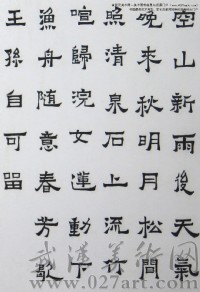 空山新雨後天氣
晚来秋明月松間
照清泉石上流竹
喧歸浣女蓮動下
漁舟随意春芳歇
王孫自可留
武漢美術网
www.027art.com